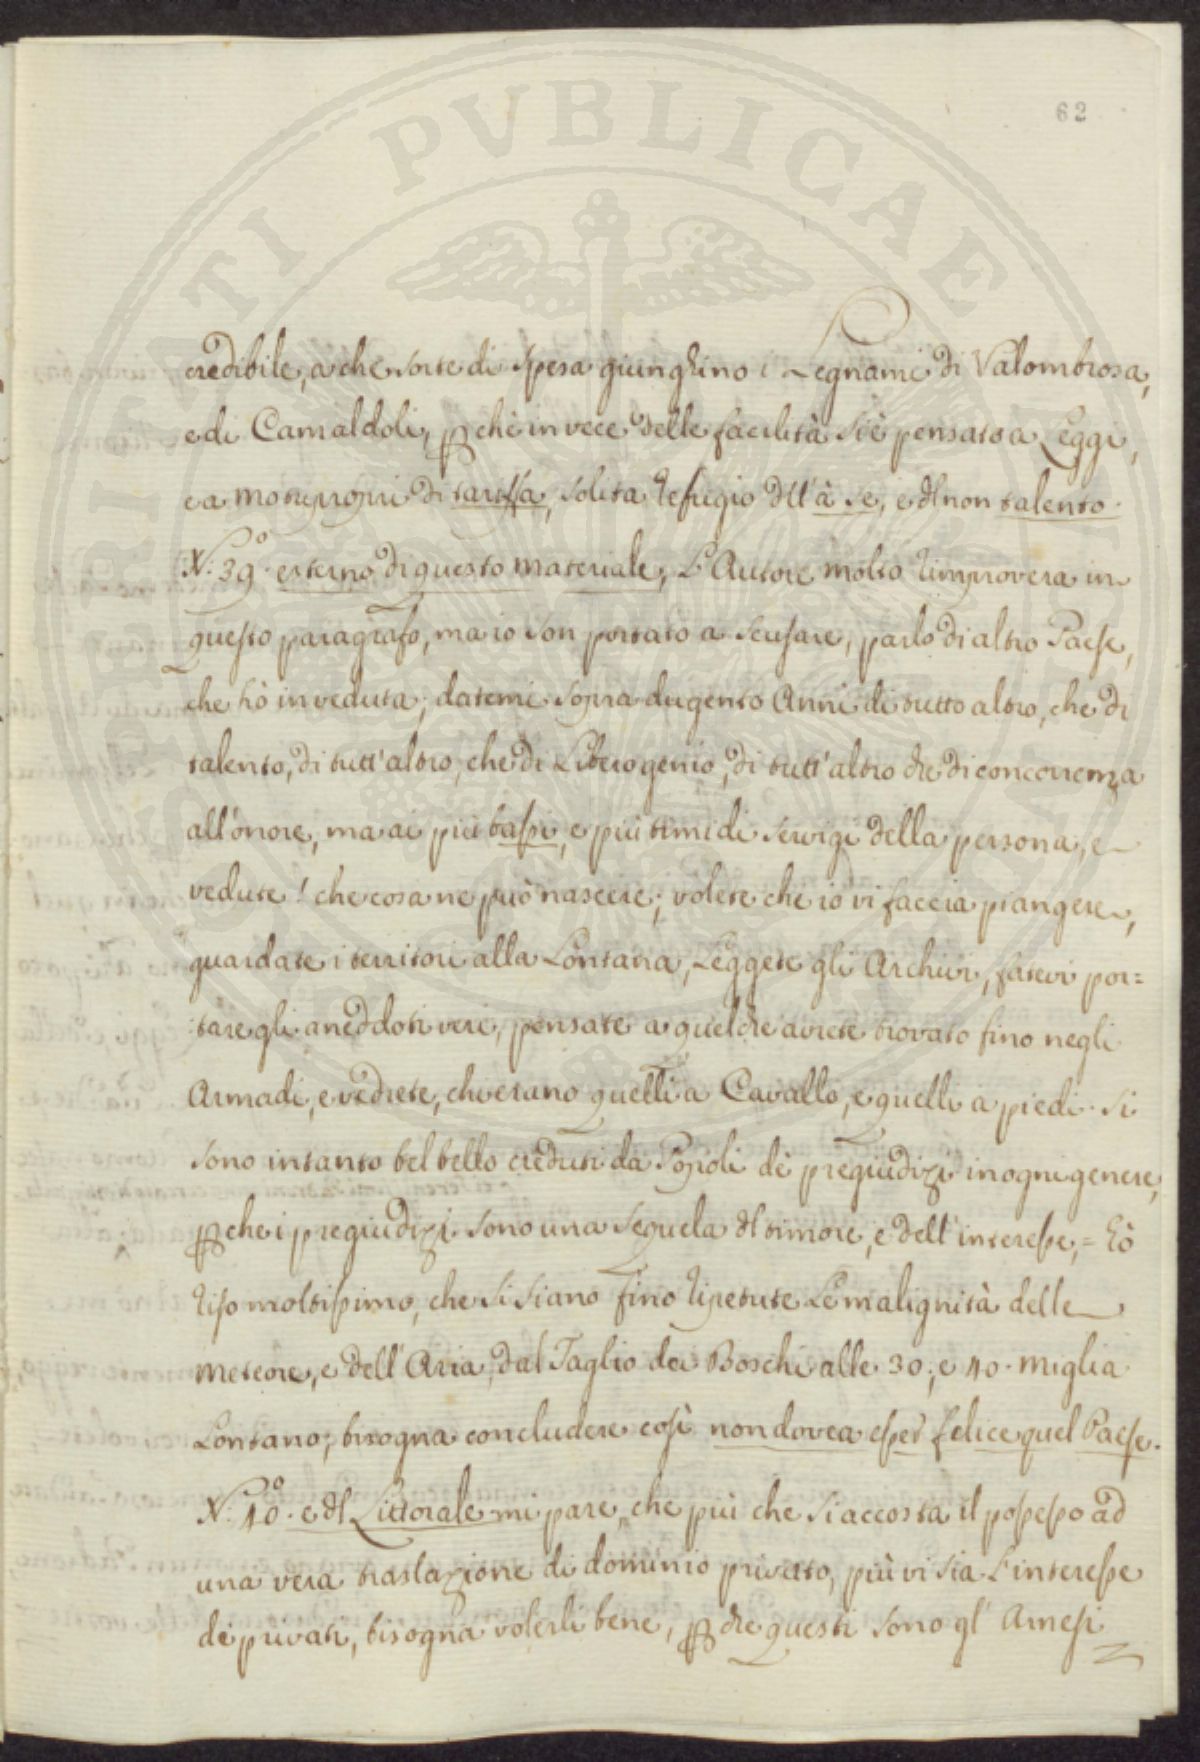 62
credibile, a che sorte di spesa giunghino i Legnami di Valombrosa,
e di Camaldoli, pchè in vece delle facilità si è pensato a Leggi,
e a motupropri di tariffa, solita refugio dll'à se, e dl non talento.
N.º 39. esterno di questo materiale, L'Autore molto rimprovera in
questo paragrafo, ma io son portato a scusare, parlo di altro Paese,
che hò in veduta; datemi sopra dugento Anni di tutto altro, che di
talento, di tutt'altro, che di Libero genio, di tutt'altro che di concorrenza
all'onore, ma ai più bassi, e più timidi servigi della persona, e
vedute! che cosa ne può nascere; volete che io vi faccia piangere,
guardate i territori alla Lontana, Leggete gli Archivi, fatevi por=
:tare gli aneddoti veri, pensate a quel che avrete trovato fino negli
Armadi, e vedrete, chi erano quelli a Cavallo, e quelli a piedi. Si
sono intanto bel bello creduti da Popoli de pregiudizi in ogni genere,
pche i pregiudizi sono una sequela dl timore, e dell'interesse, = hò
riso moltissimo, che si siano fino ripetute Le malignità delle
meteore, e dell'Aria, dal Taglio dei Boschi alle 30, e 40. miglia
Lontano, bisogna concludere così non dovea esser felice quel Paese.
N.º 40. e dl Littorale mi pare, che più che si accosta il possesso ad
una vera traslazione di dominio privato, più vi sia L'interesse
dei privati, bisogna volerli bene, pche questi sono gl' Arnesi
SPERITATI PVBLICAE